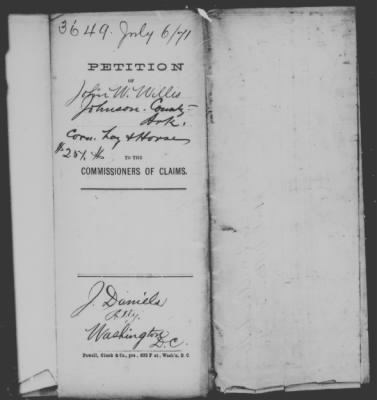 3649. July 6/71
PETITION
OF
John W. Willis
Johnson County
Ark.
Corn, Hay & Horse
$251.
TO THE
COMMISSIONERS OF CLAIMS.
J. Daniels
Atty.
Washington
D.C.
Powell, Ginck & Co., prs., 632 F st., Wash'n, D. C.